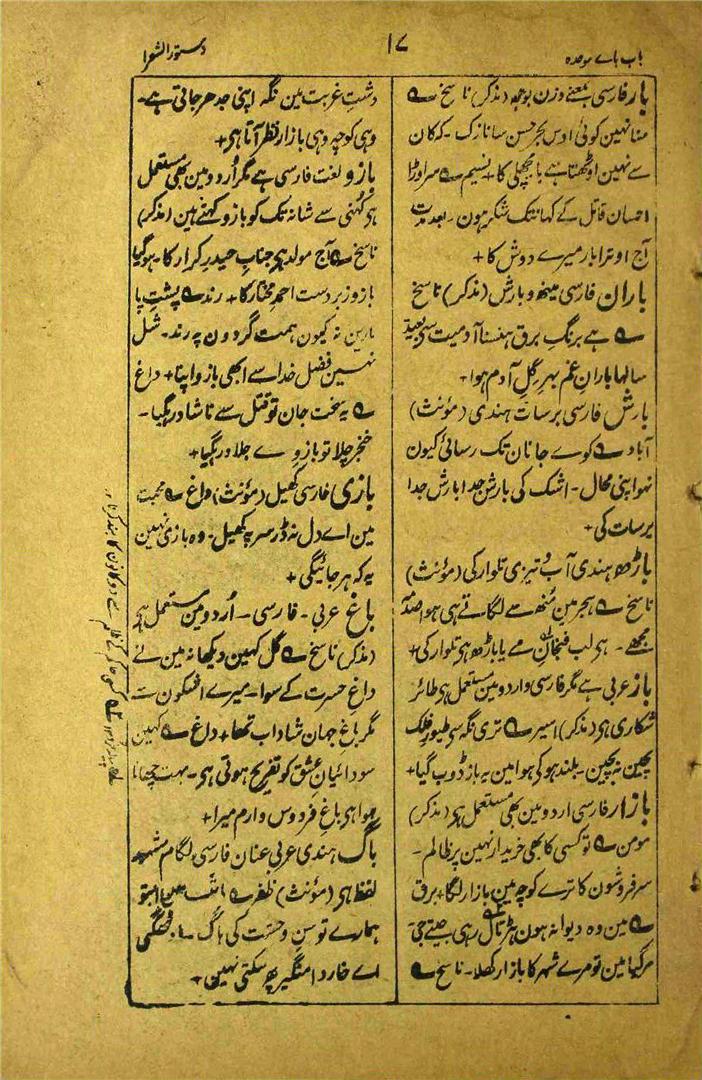 باب باے موحدہ
۱۷
دستور الشعرا
بار فارسی بمعنے وزن بوجھ (مذکر) ناسخ ؎
سنا نہین کوئی اوس بحر حسن سا نازک ۔ کہ کان
سے نہین اوٹھتا ہے بار مچھلی کا + نسیم ؎ سر اوڑا
احسان قاتل کے کہانتک شکر ہون ۔ بعد مدت
آج اوترا بار میرے دوش کا +
باران فارسی مینھ و بارش (مذکر) ناسخ
؎ ہے برنگِ برق ہنسنا آدمیت سے بعید
سالہا بارانِ غم بہرِ گِل آدم ہوا +
بارش فارسی برسات ہندی (مؤنث)
آباد ؎ کوے جانان تک رسائی کیون
نہو اپنی محال ۔ اشک کی بارش جدا بارش جدا
برسات کی +
باڑھ ہندی آب و تیزی تلوار کی (مؤنث)
ناسخ ؎ ہجر مین مُنھ سے لگاتے ہی ہوا صدمہ
مجھے ۔ ہی لب فنجان مے یا باڑھ ہی تلوار کی +
باز عربی ہے مگر فارسی و اردو مین مستعمل ہی طائر
شکاری ہی (مذکر) اسیر ؎ تری نگہ سے طیورِ فلک
بچین نہ بچین ۔ بلند ہو کی ہوا مین یہ باز ڈوب گیا +
بازار فارسی اردو مین بھی مستعمل ہی (مذکر)
مومن ؎ تو کسی کا بھی خریدار نہین پر ظالم ۔
سر فروشون کا ترے کوچہ مین بازار لگا + برق
؎ مین وہ دیوانہ ہون ہڑتال رہی جیتے جی ۔
مر گیا مین تو مرے شہر کا بازار کھلا ۔ ناسخ ؎
دشتِ غربت مین نگہ اپنی جدھر جاتی ہے ۔
وہی کوچہ وہی بازار نظر آتا ہی +
بازو لغت فارسی ہے مگر اُردو مین بھی مستعمل
ہی کُہنی سے شانہ تک کو بازو کہتے ہین (مذکر)
ناسخ ؎ آج مولد ہی جنابِ حیدرِ کرار کا ۔ ہوگیا
بازو زبردست احمدِ مختار کا + رند ؎ پشتِ پا
مارین نہ کیون ہمت گردون پہ رند ۔ شل
نہین فضل خدا سے ابھی بازو اپنا + داغ
؎ یہ سخت جان تو قتل سے ناشاد رہگیا ۔
خنجر چلا تو بازوے جلاد رہگیا +
بازی فارسی کھیل (مؤنث) داغ ؎ محبت
مین اے دل نہ ڈر سر پہ کھیل ۔ وہ بازی نہین
یہ کہ ہر جائیگی +
باغ عربی ۔ فارسی ۔ اُردو مین مستعمل ہی
(مذکر) ناسخ ؎ گل کہین دیکھا نہ مین نے
داغ حسرت کے سوا ۔ میرے اشکون سے
مگر باغ جہان شاداب تھا + داغ ؎ کہین
سودائیانِ عشق کو تفریح ہوتی ہی ۔ بہت چھانا
ہوا ہی باغِ فردوس و ارم میرا +
باگ ہندی عربی عنان فارسی لگام مشہور
لفظ ہی (مؤنث) ظفر ؎
ہمارے توسنِ وحشت کی باگ
اے خار دامنگیر پھر سکتی نہین +